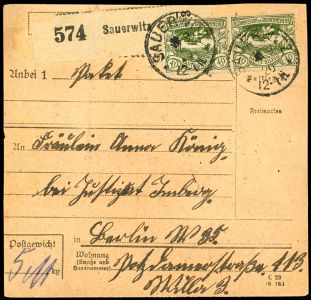 574 Sauerwitz
SAUERWITZ
40 40
Anbei 1 Paket
Freimarken
An Fräulein Anna König
bei Justizrat Imberg
Berlin W 35.
Postgewicht
Wohnung
(Straße und
Hausnummer)
Potsdamerstraße 113
Villa 3.
5 kg